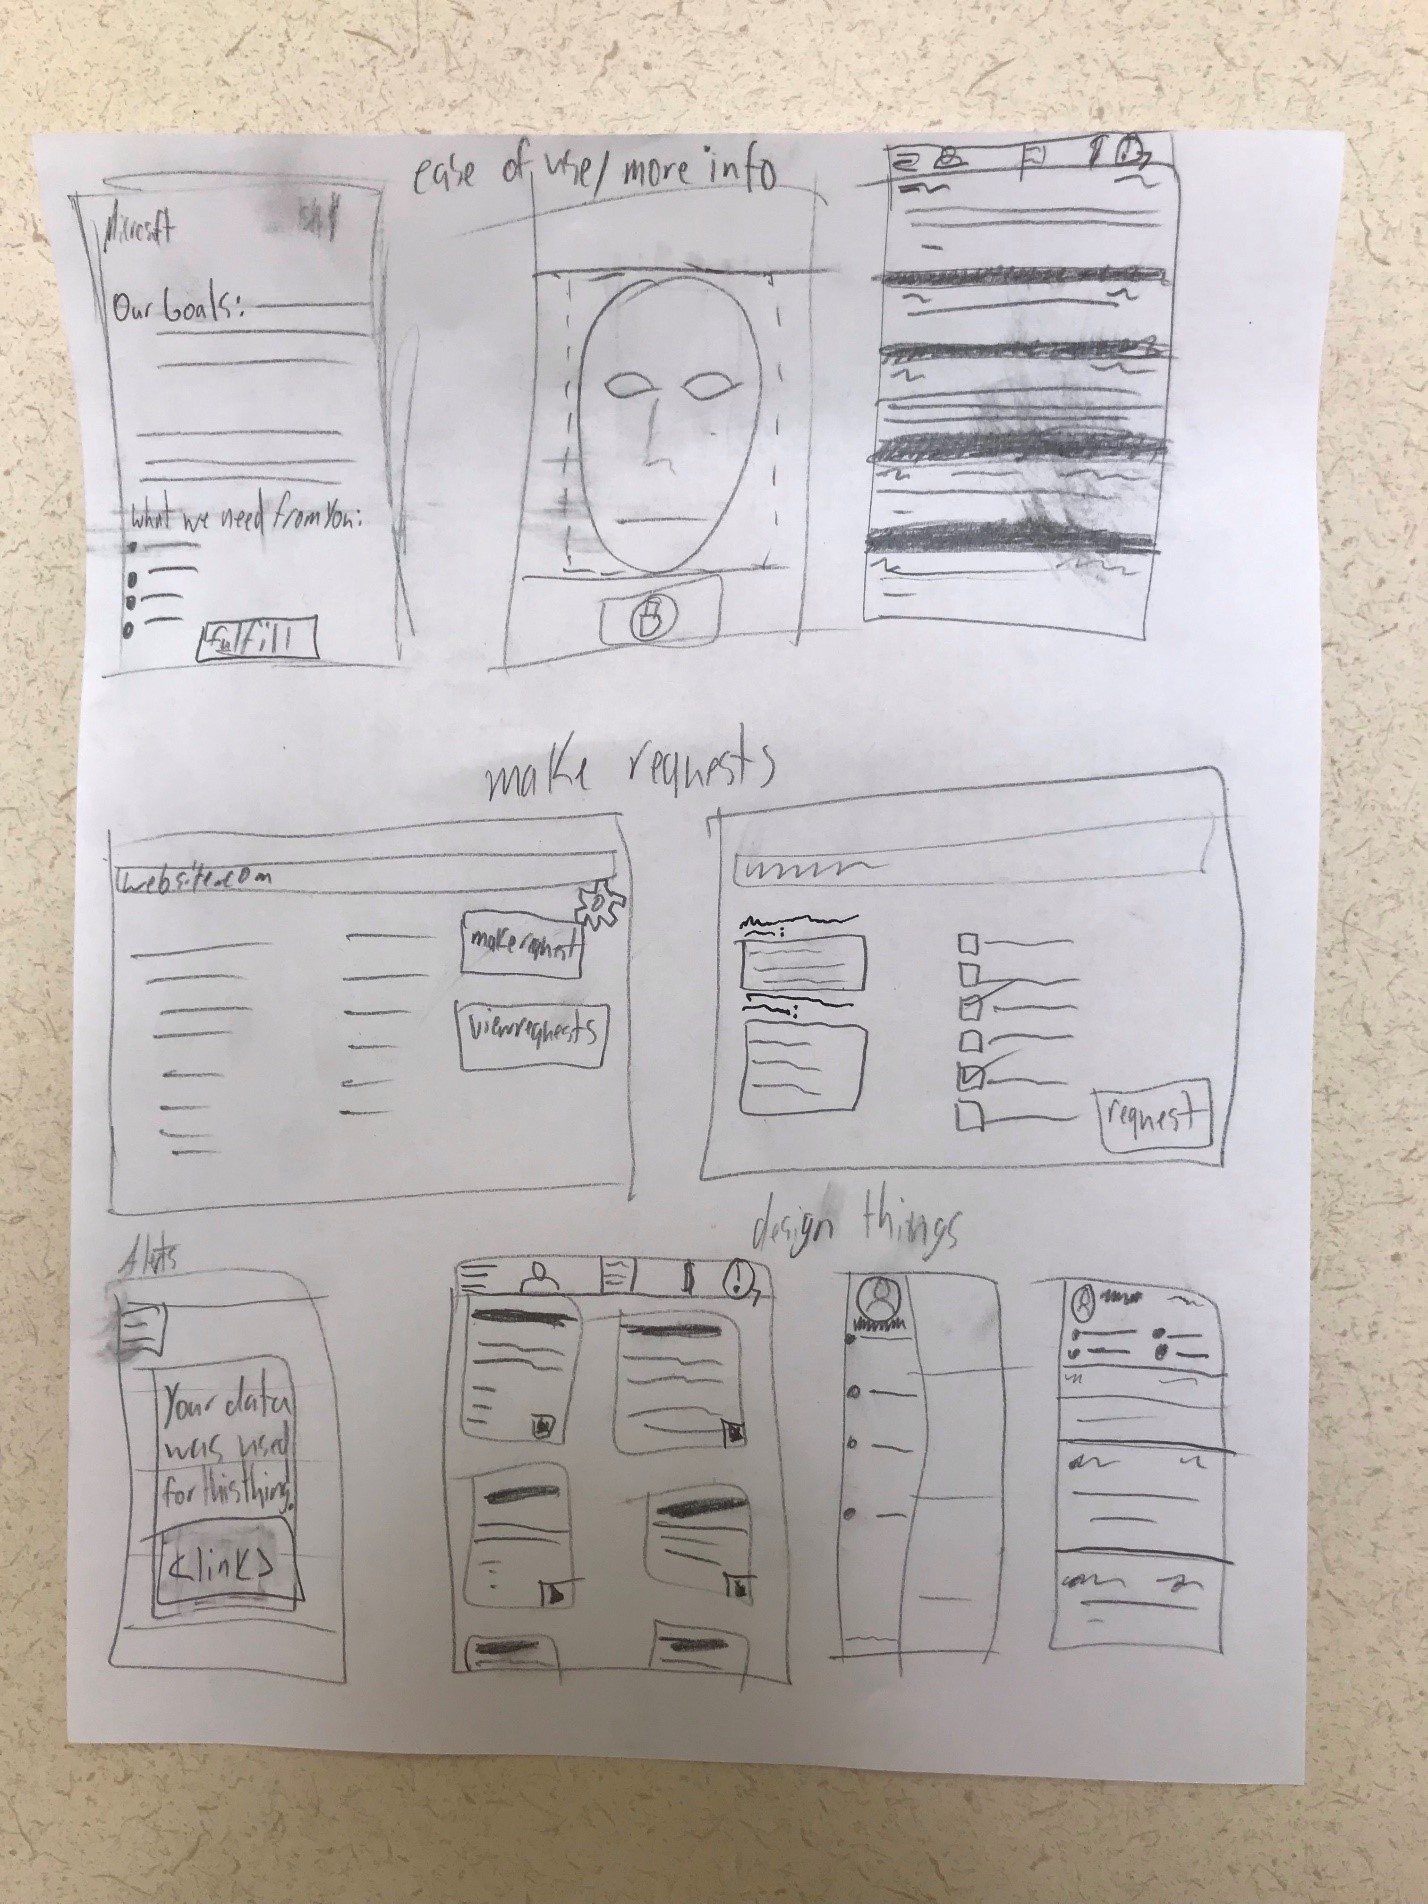 ease of use/more info
Microsoft
Our Goals:
What we need from You:
fulfill
make requests
website.com
make request
view requests
request
design things
Alerts
Your data
was used
for this thing.
<link>